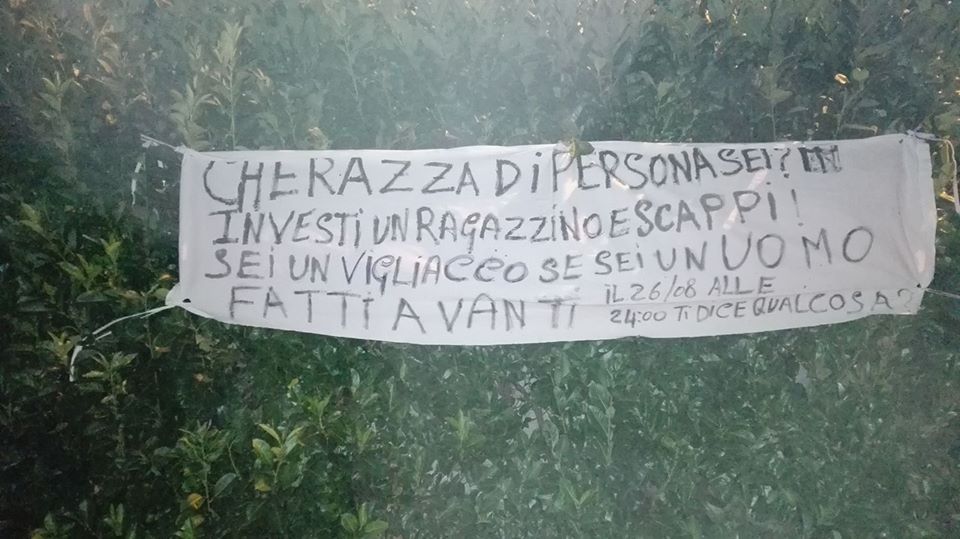 CHE RAZZA Di PERSONA SEI? !!!
INVESTi UN RAGAZZINO E SCAPPi!
SEi UN ViGLiACCO SE SEi UN UOMO
FATTi AVANTi iL 26/08 ALLE
24:00 Ti DiCE QUALCOSA?